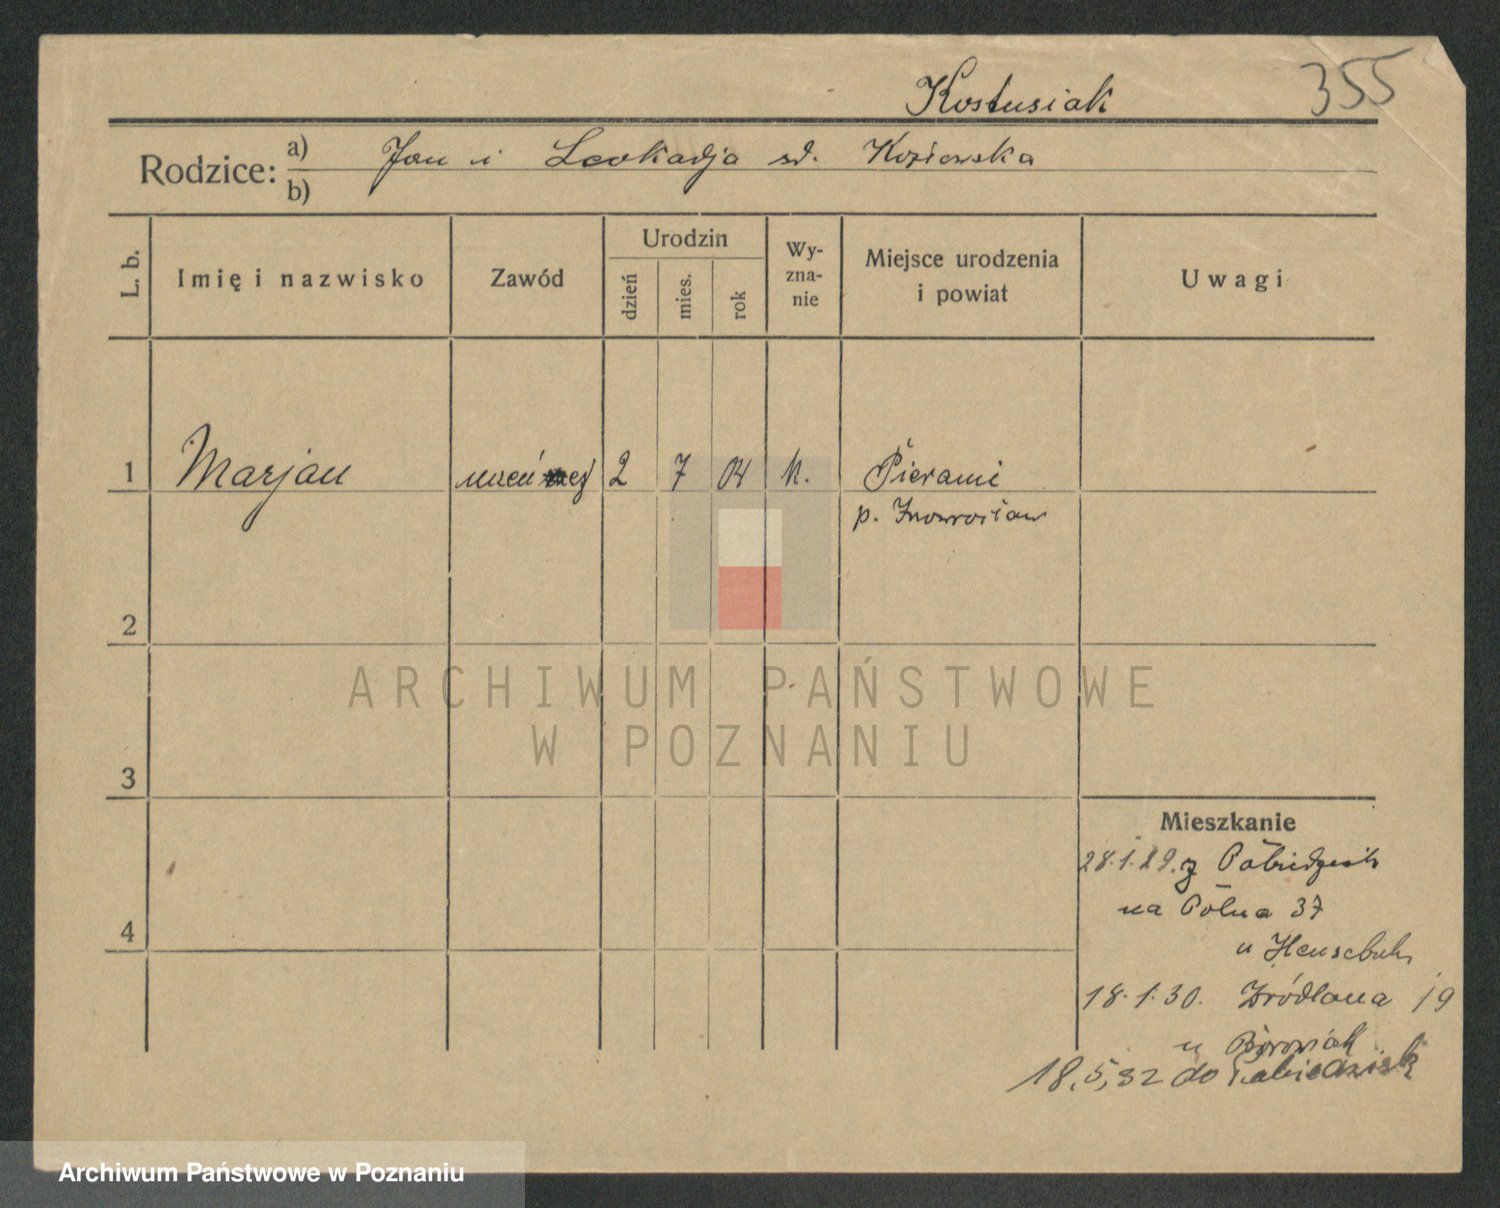 355
Kostusiak
Rodzice: a) Jan i Leokadja zd. Kozłowska
b)
L. b.
Imię i nazwisko
Zawód
Urodzin
dzień
mies.
rok
Wy-
zna-
nie
Miejsce urodzenia
i powiat
Uwagi
1 Marjan 2 7 04 k. Pieranie
p. Inowrocław
2
3
4
ARCHIWUM PAŃSTWOWE
W POZNANIU
Mieszkanie
28.1.29. z Pobiedzisk
na Polna 37
u
18.1.30. Źródlana 19
u Borowiak
18.5.32 do Pobiedzisk
Archiwum Państwowe w Poznaniu